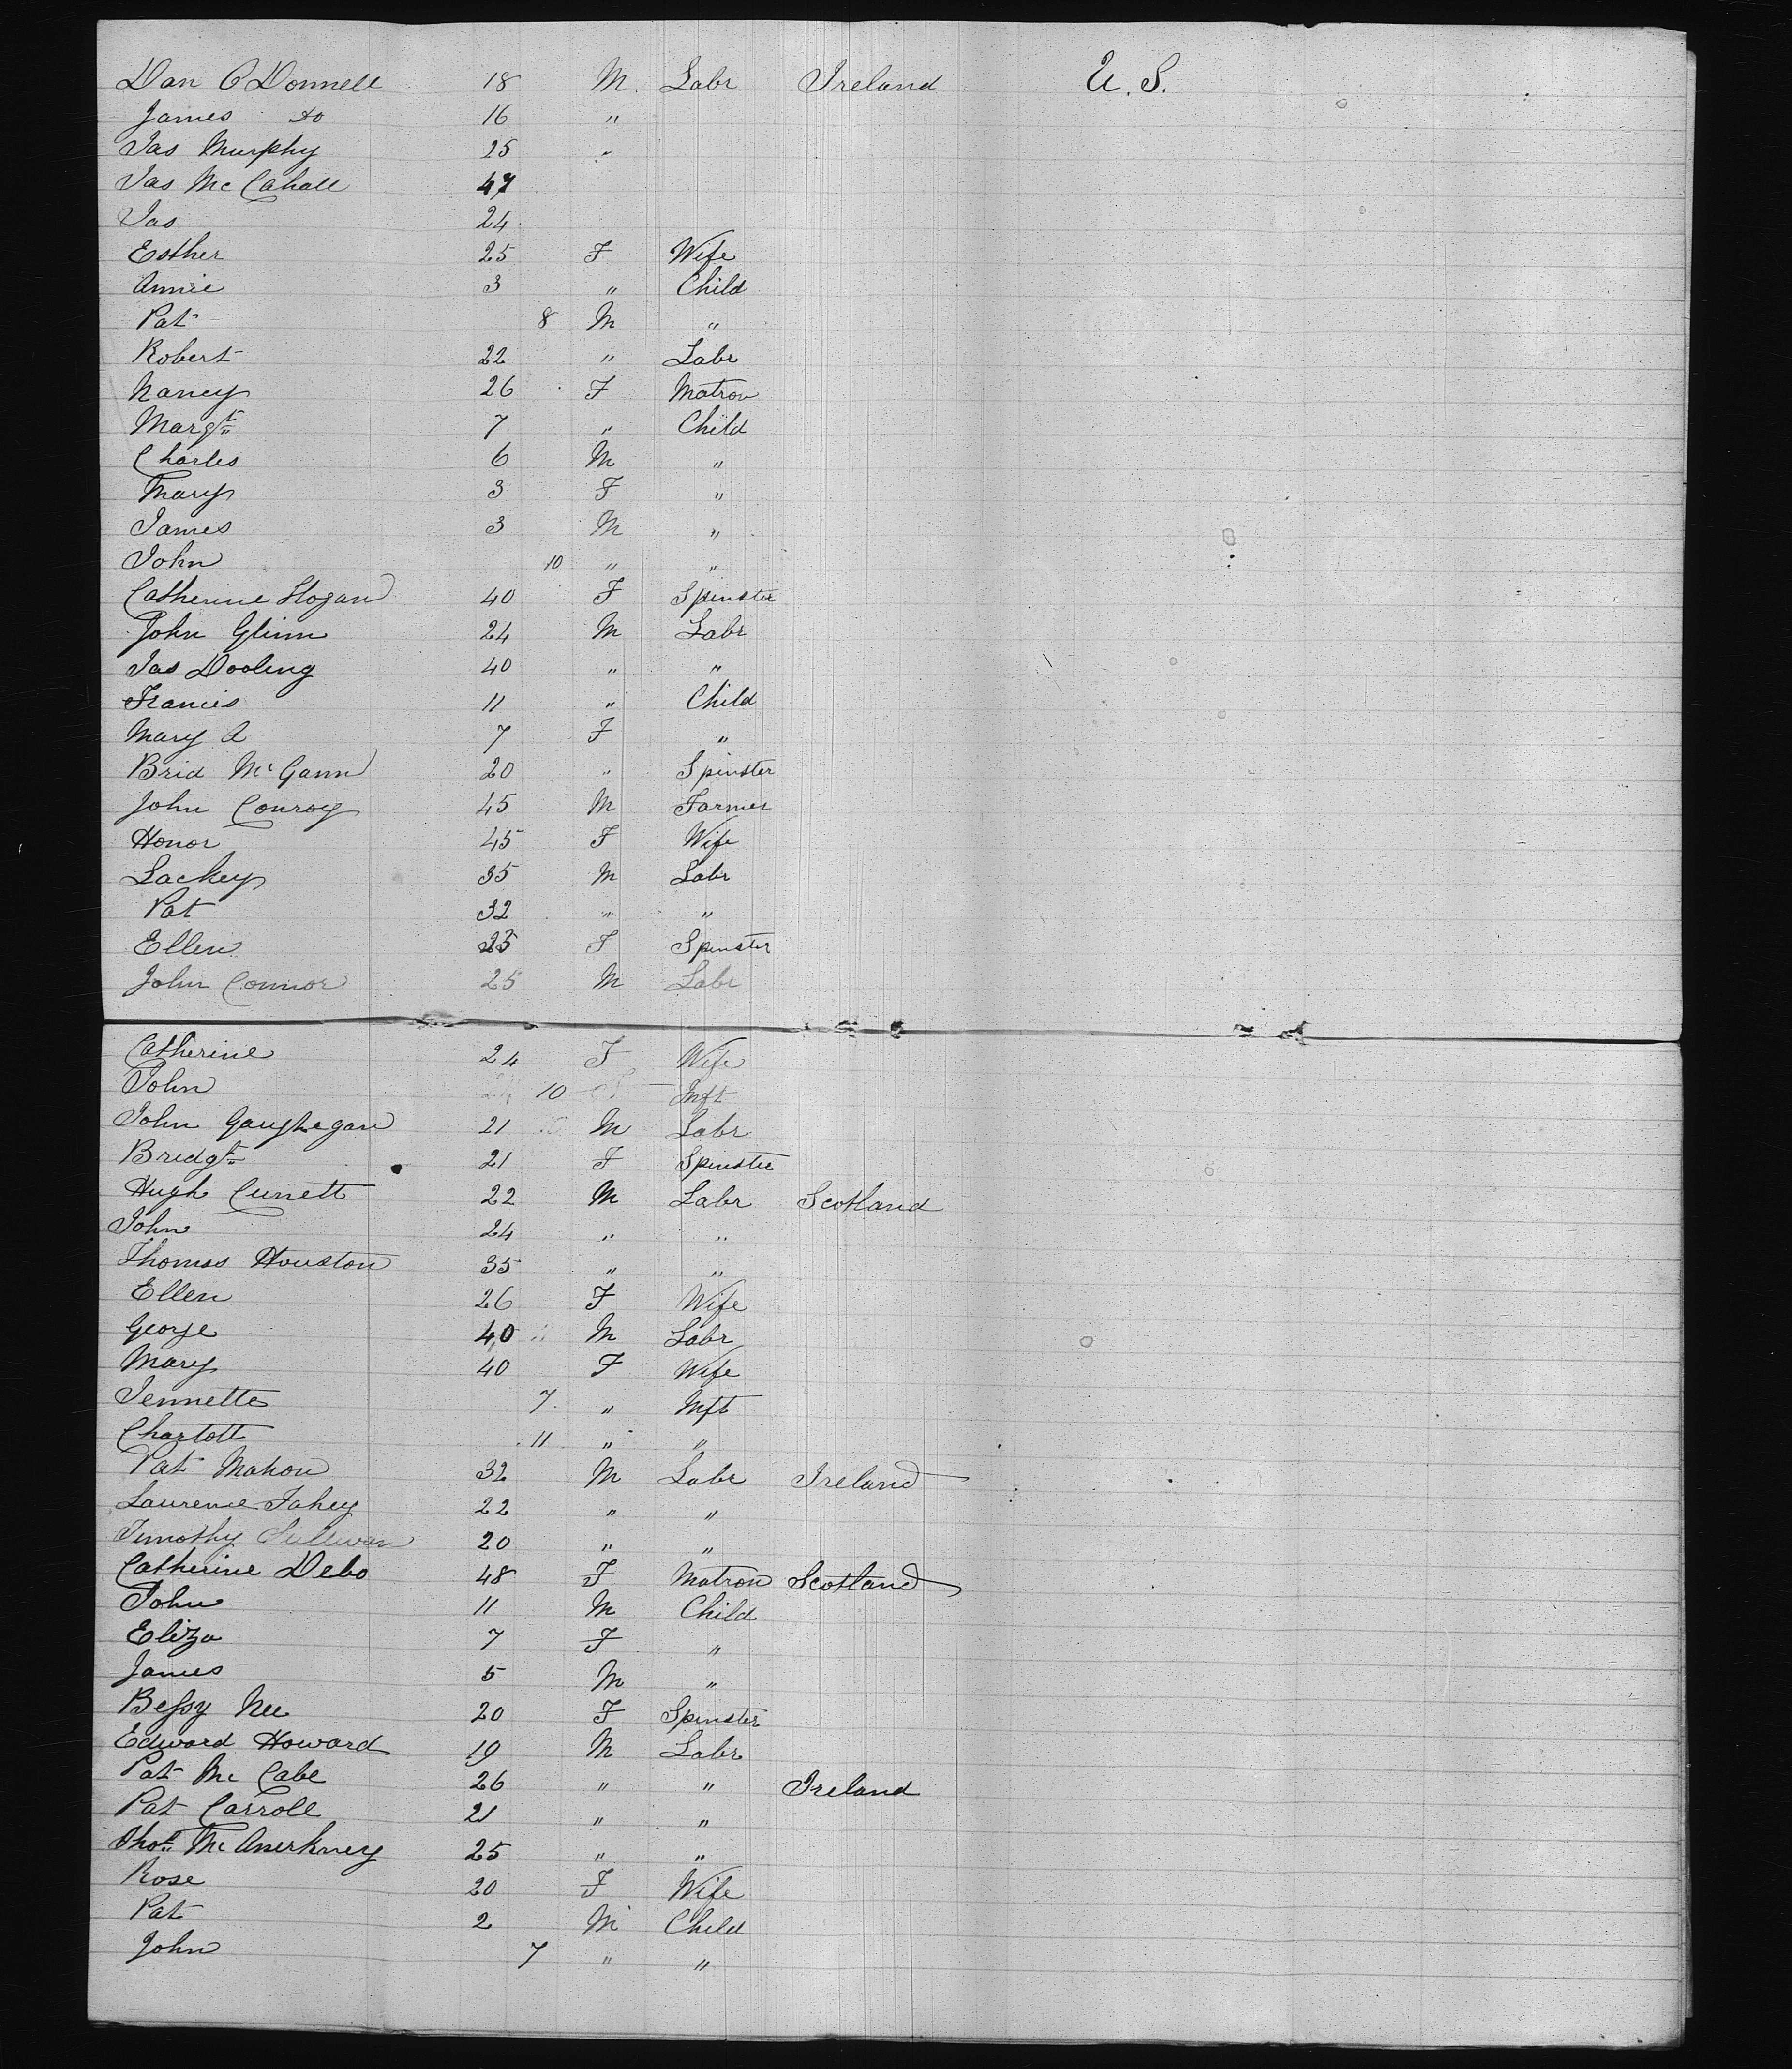 Dan O Donnell 18 M. Labr Ireland U. S.
James do 16 "
Jas Murphy 25 "
Jas Mc Cahall 47
Jas 24
Esther 25 F Wife
Annie 3 " Child
Pat 8 M "
Robert 22 " Labr
Nancy 26 F Matron
Margt 7 " Child
Charles 6 M "
Mary 3 F "
James 3 M "
John 10 " "
Catherine Hogan 40 F Spinster
John Glinn 24 M Labr
Jas Dooling 40 " "
Francis 11 " Child
Mary A 7 F "
Brid McGann 20 " Spinster
John Conroy 45 M Farmer
Honor 45 F Wife
Lackey 35 M Labr
Pat 32 " "
Ellen 25 F Spinster
John Connor 25 M Labr
Catherine 24 F Wife
John 10 Inft
John Gaughegan 21 M Labr
Bridgt 21 F Spinster
Hugh Cunett 22 M Labr Scotland
John 24 " "
Thomas Houston 35 " "
Ellen 26 F Wife
George 40 M Labr
Mary 40 F Wife
Jennette 7 " Inft
Charlott 11 " "
Pat Mahon 32 M Labr Ireland
Laurence Fahey 22 " "
Timothy Sullivan 20 " "
Catherine Debo 48 F Matron Scotland
John 11 M Child
Eliza 7 F "
James 5 M "
Bessy Nee 20 F Spinster
Edward Howard 19 M Labr
Pat Mc Cabe 26 " " Ireland
Pat Carroll 21 " "
Thos Mc 25 " "
Rose 20 F Wife
Pat 2 M Child
John 7 " "